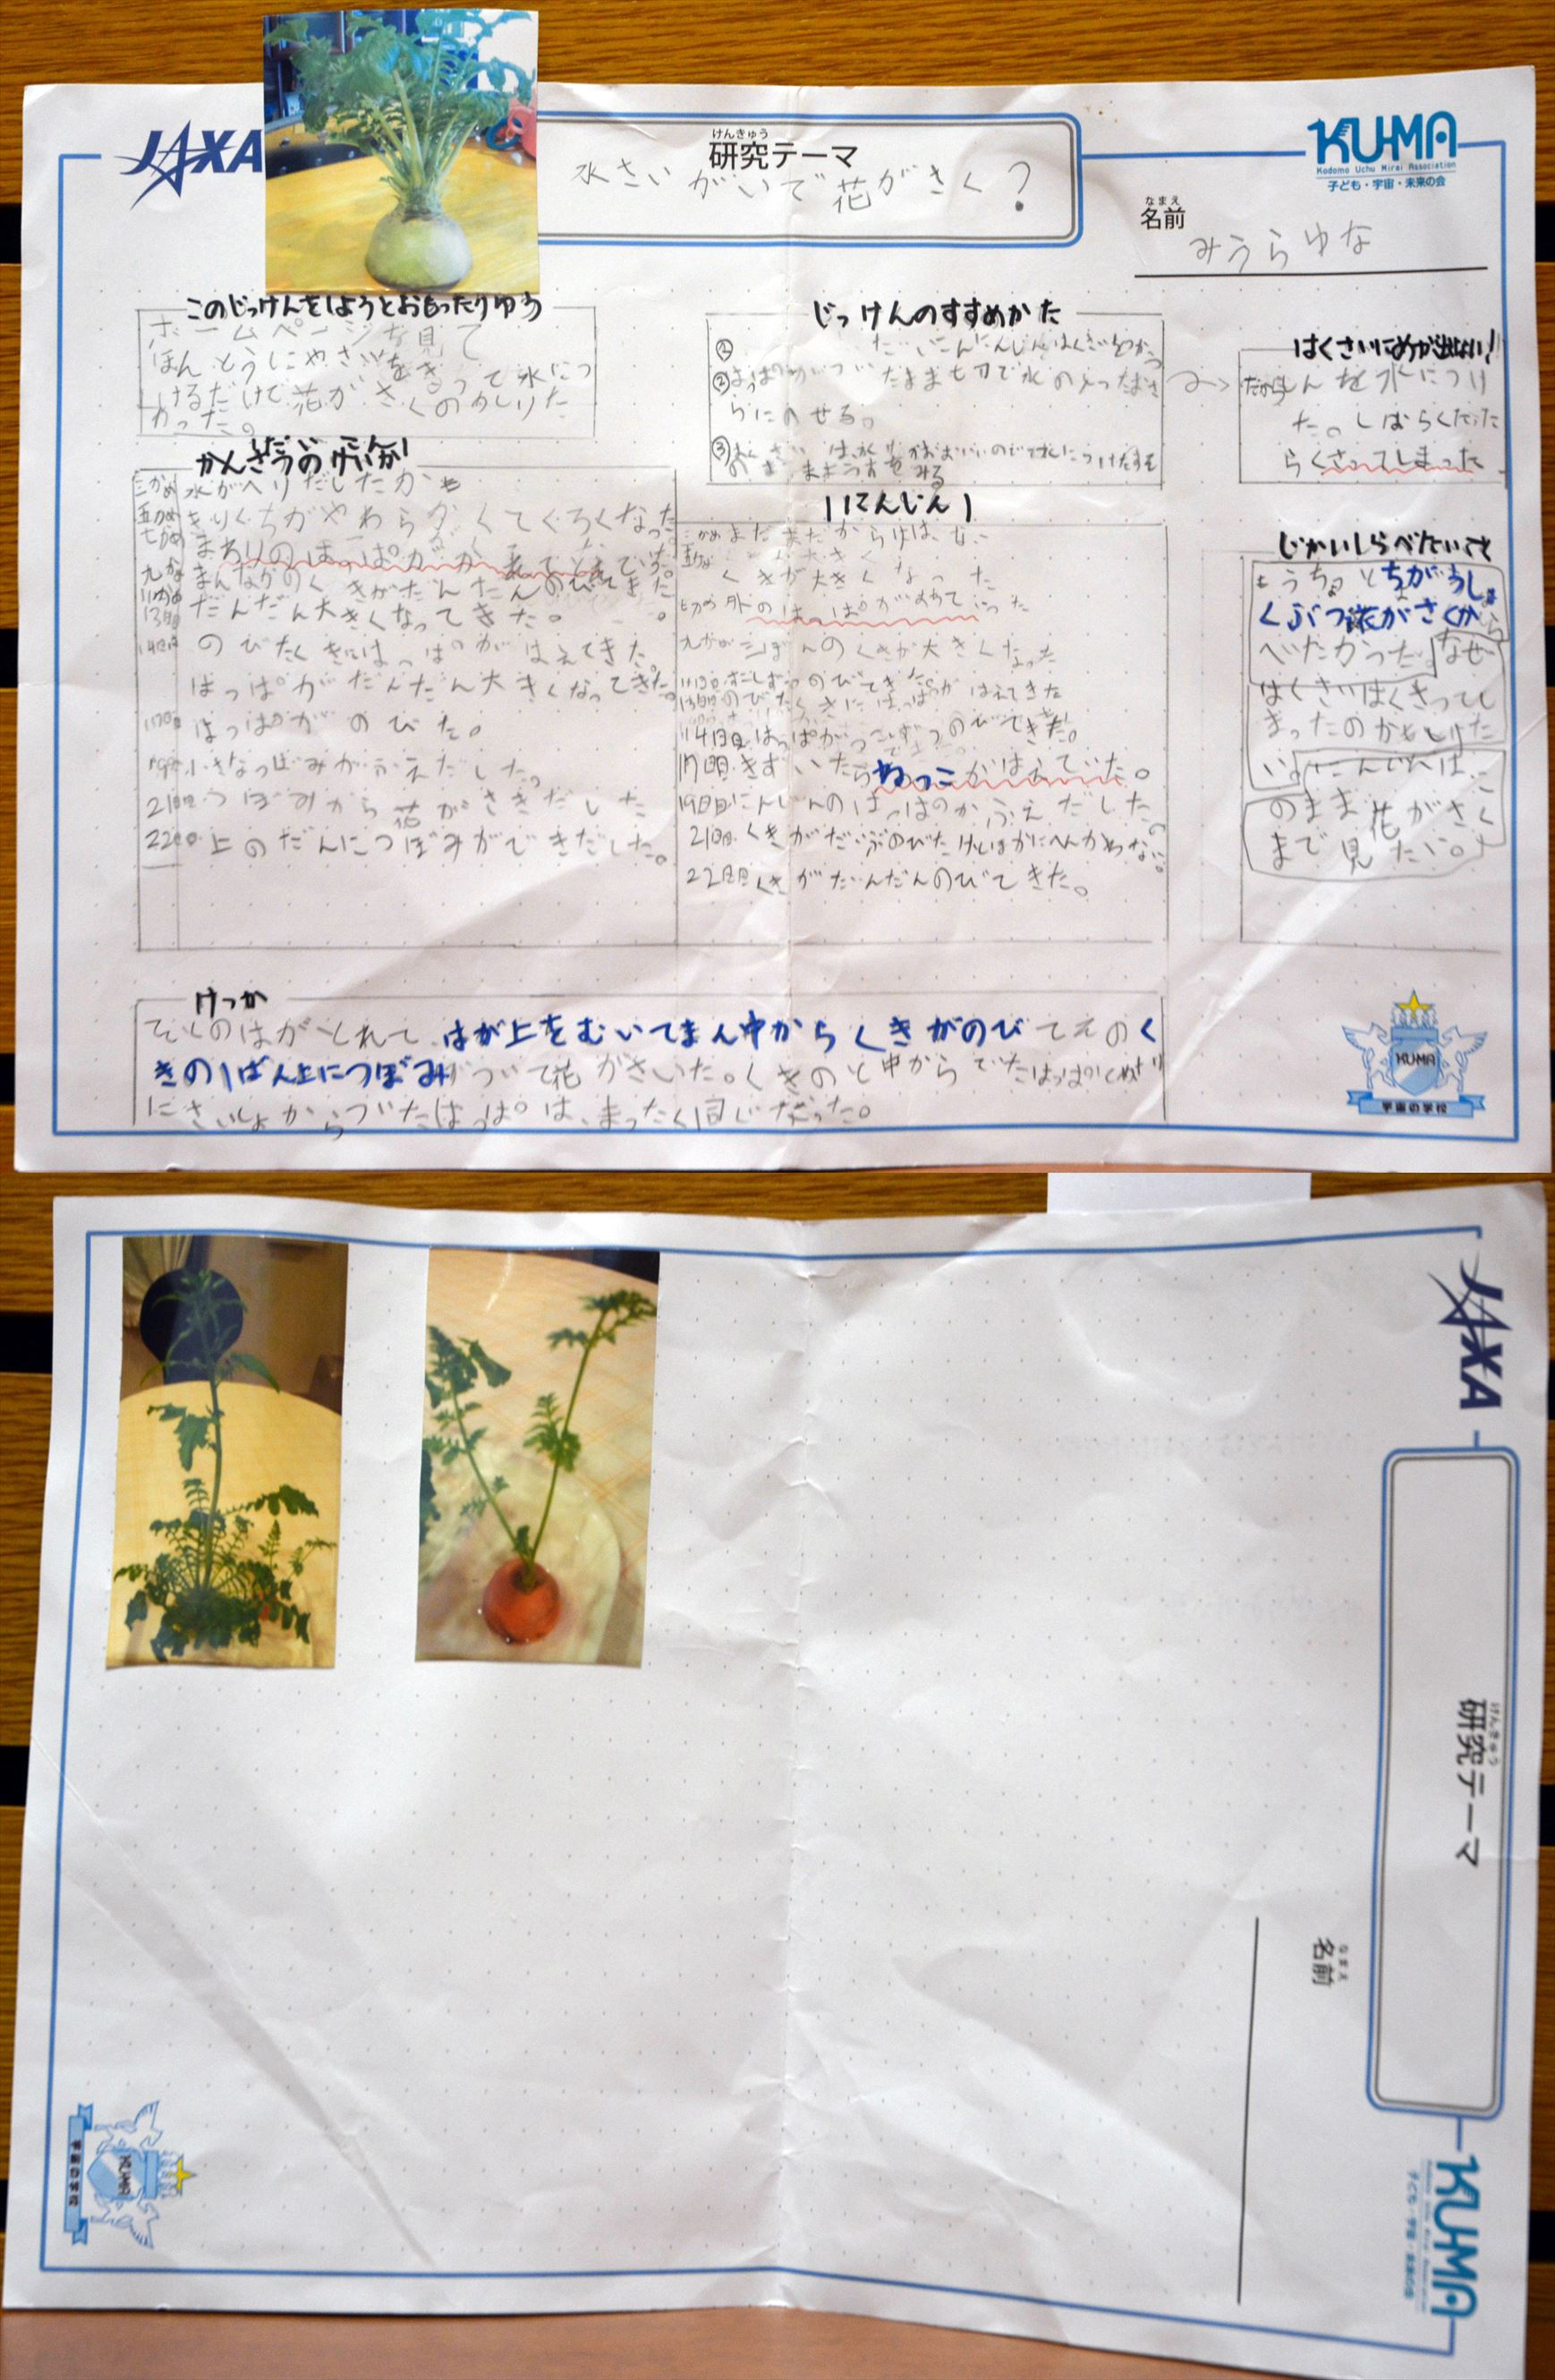 JAXA
けんきゅう
研究テーマ
水さいがいで花がさく?
KU-MA
Kodomo Uchu Mirai Association
子ども・宇宙・未来の会
なまえ
名前
みうらゆな
このじっけんをしようとおもったりゆう
ホームページを見て
ほんとうにやさいをきって水につ
けるだけで花がさくのかしりた
かった。
じっけんのすすめかた
①
だいこんにんじんはくさいをつかう
②
たまま切って水の入ったおさ
らにのせる。
③
はくさいにめが出ない!
だからしんを水につけ
た。しばらくたった
らくさってしまった
かんさつのけいか
三かめ 水がへりだしたから
五かめ きりくちがやわらかくてくろくなった
七かめ まわりのはっぱが
九かめ まんなかのくきがだんだんのびてきた
11かめ だんだん大きくなってきた。
13日目
14日目 のびたくきにはっぱがはえてきた
はっぱがだんだん大きくなってきた。
17日目 はっぱがのびた。
19日目 小さなつぼみがふえだした。
21日目 つぼみから花がさきだした
22日目 上のだんにつぼみができだした。
にんじん
三かめ まだ
五かめ
くきが大きくなった
七かめ 外のはっぱが
九かめ 三ぼんのくきが大きくなった
11日目 のびてきた
13日目 のびたくきにはっぱがはえてきた
14日目 はっぱがつぎつぎのびてきた。
17日目 きずいたらねっこがはえていた。
19日目 にんじんのはっぱのかずがふえだした。
21日目 くきがだいぶのびたけどほかにへんかわない。
22日目 くきがだんだんのびてきた。
じかいしらべたいこと
もうちょっとちがうしょ
くぶつ花がさくか
べたかった。なぜ
はくさいはくさってし
まったのかもしりた
い。にんじんは、こ
のまま花がさく
まで見たい。
けっか
そとのはがとれて、はが上をむいてまん中からくきがのびてそのく
きの1ばん上につぼみがついて花がさいた。くきのと中からでたはっぱ
にさいしょからついたはっぱは、まったく同じだった。
KUMA
宇宙の学校
JAXA
けんきゅう
研究テーマ
なまえ
名前
KU-MA
子ども・宇宙・未来の会
KUMA
宇宙の学校